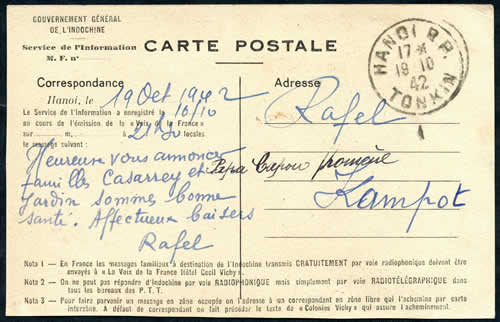 GOUVERNEMENT GÉNÉRAL
DE L'INDOCHINE
Service de l'Information
M. F. nº
CARTE POSTALE
HANOI R.P.
17 *
19 10
42
TONKIN
Correspondance
Hanoi, le 19 Oct 1942
Le Service de l'Information a enregistré le 10/10
au cours de l'émission de la « Voix de la France »
sur m, à 21h30 locales
le message suivant :
Heureuse vous annoncer
familles Casarrey et
Jardin sommes bonne
santé. Affectueux baisers
Rafel
Adresse
Rafel
Kampot
Nota 1 — En France les messages familiaux à destination de l'Indochine transmis GRATUITEMENT par voie radiophonique doivent être
envoyés à « La Voix de la France Hôtel Cecil Vichy ».
Nota 2 — On ne peut pas répondre d'Indochine par voie RADIOPHONIQUE mais simplement par voie RADIOTÉLÉGRAPHIQUE dans
tous les bureaux des P. T. T.
Nota 3 — Pour faire parvenir un message en zone occupée on l'adresse à un correspondant en zone libre qui l'achemine par carte
interzone. A défaut de correspondant on fait précéder le texte de « Colonies Vichy » qui assure l'acheminement.